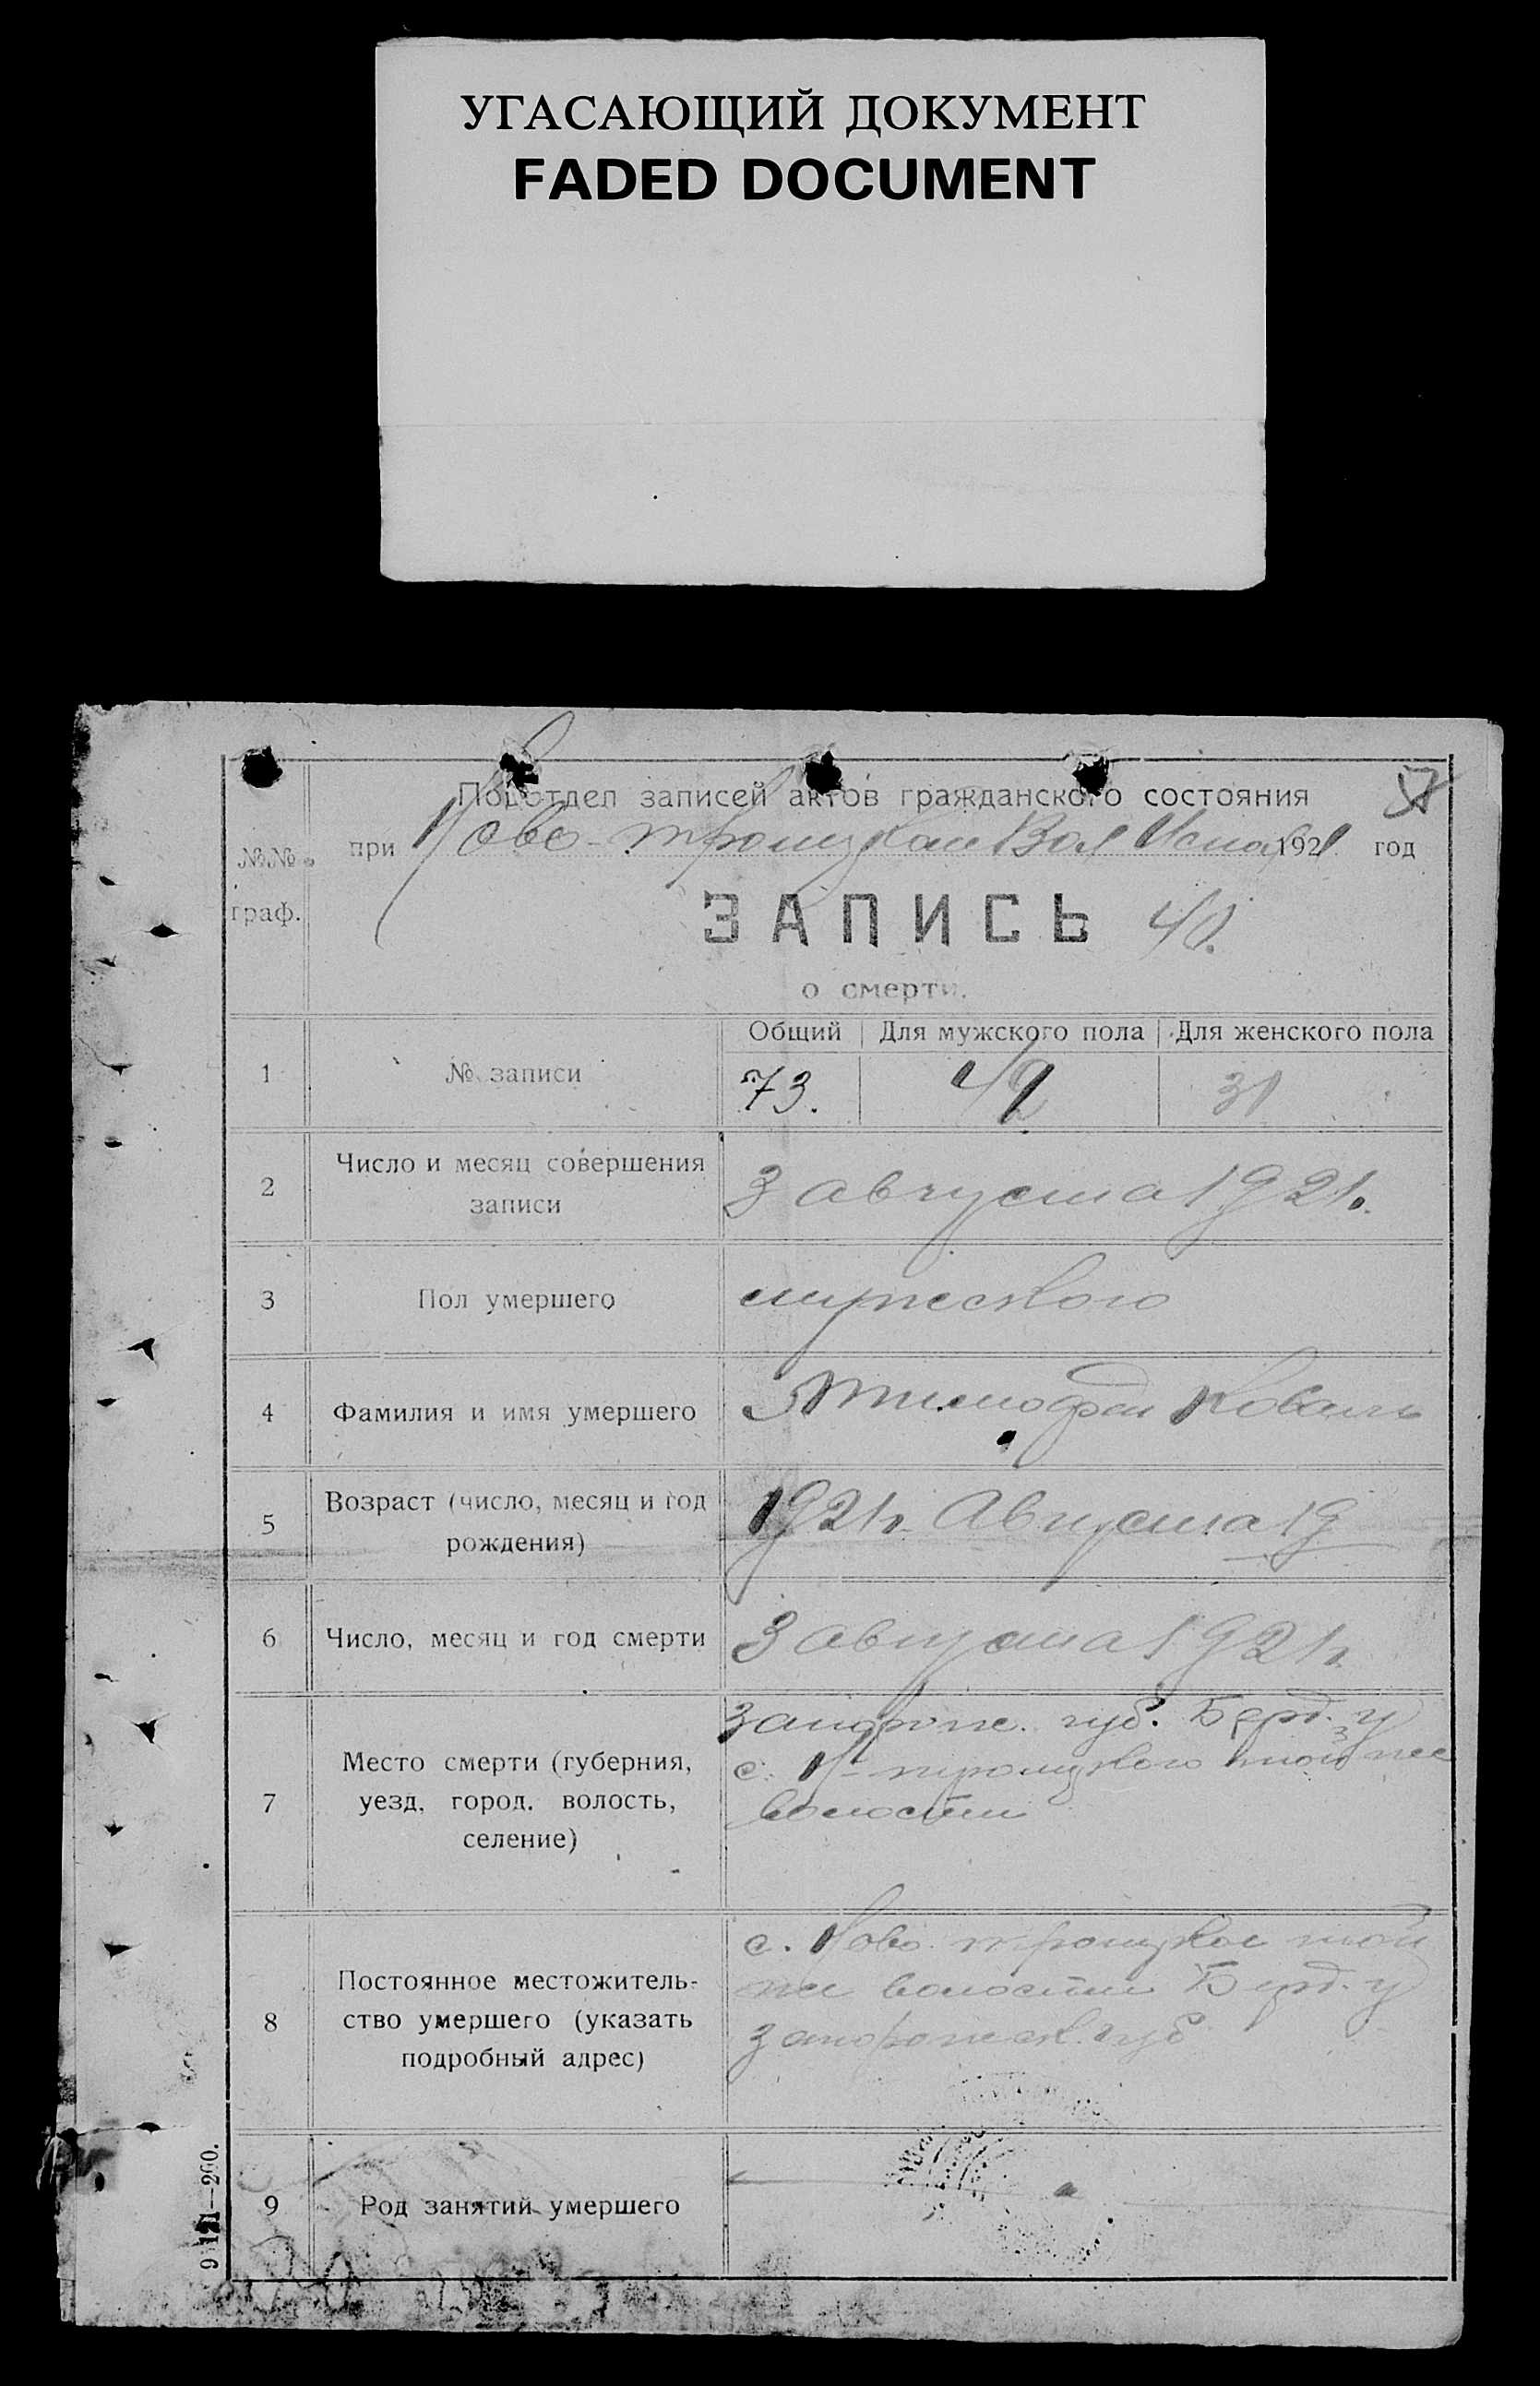 УГАСАЮЩИЙ ДОКУМЕНТ
FADED DOCUMENT
Подотдел записей актов гражданского состояния
при Ново-троицкам Вол Испол 1921 год
№№
граф.
ЗАПИСЬ 40.
о смерти.
Общий Для мужского пола Для женского пола
1 № записи 73. 42 31
2 Число и месяц совершения
записи 3 августа 1921г.
3 Пол умершего мужеского
4 Фамилия и имя умершего Тимофей Коваль
5 Возраст (число, месяц и год
рождения) 1921г. Августа 19
6 Число, месяц и год смерти 3 августа 1921г.
7 Место смерти (губерния,
уезд, город, волость,
селение)
Запорож. губ. Берд. у
с. Н-троицкого той же
волости
8 Постоянное местожитель-
ство умершего (указать
подробный адрес)
с. Ново троицкое той
же волости Берд. у
Запорожск. губ
9 Род занятий умершего